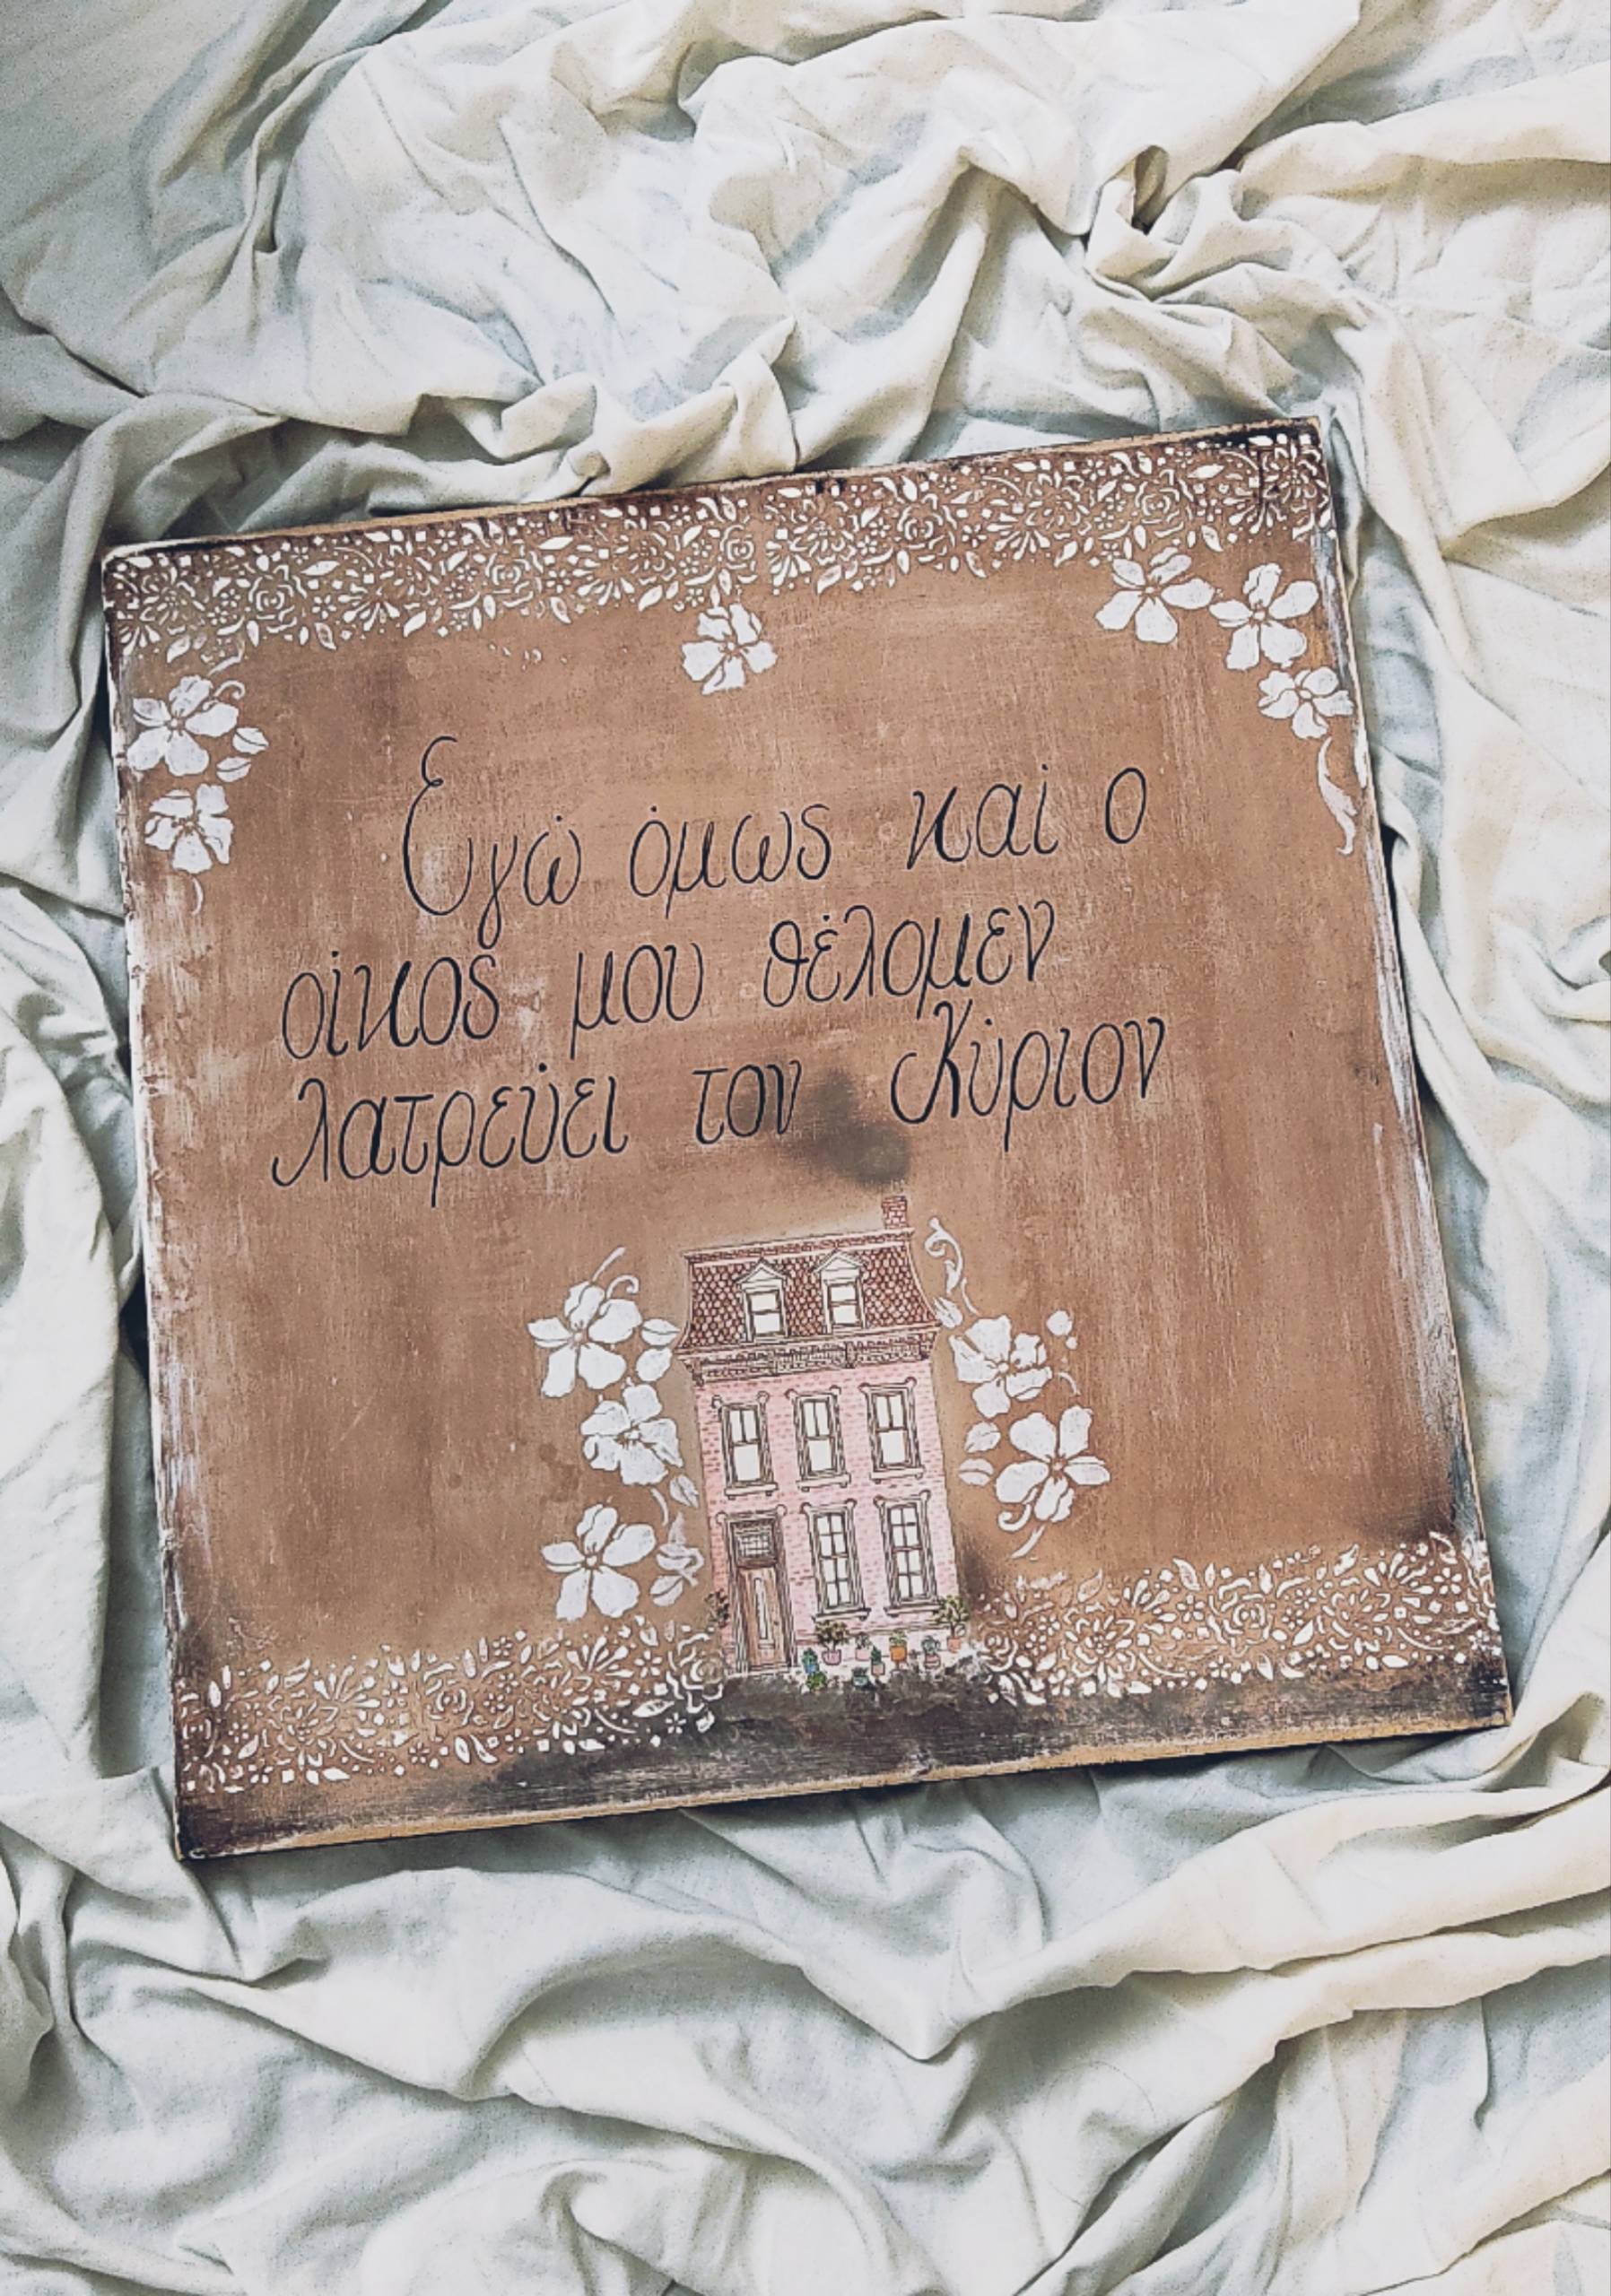 Εγώ όμως καί ο
οίκος μου θέλομεν
λατρεύει τον Κύριον